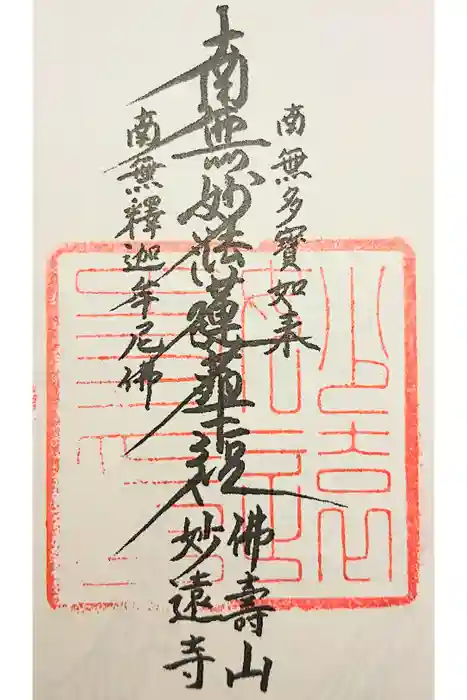 南無多寶如来
南無妙法蓮華経
南無釋迦牟尼佛
佛壽山
妙遠寺